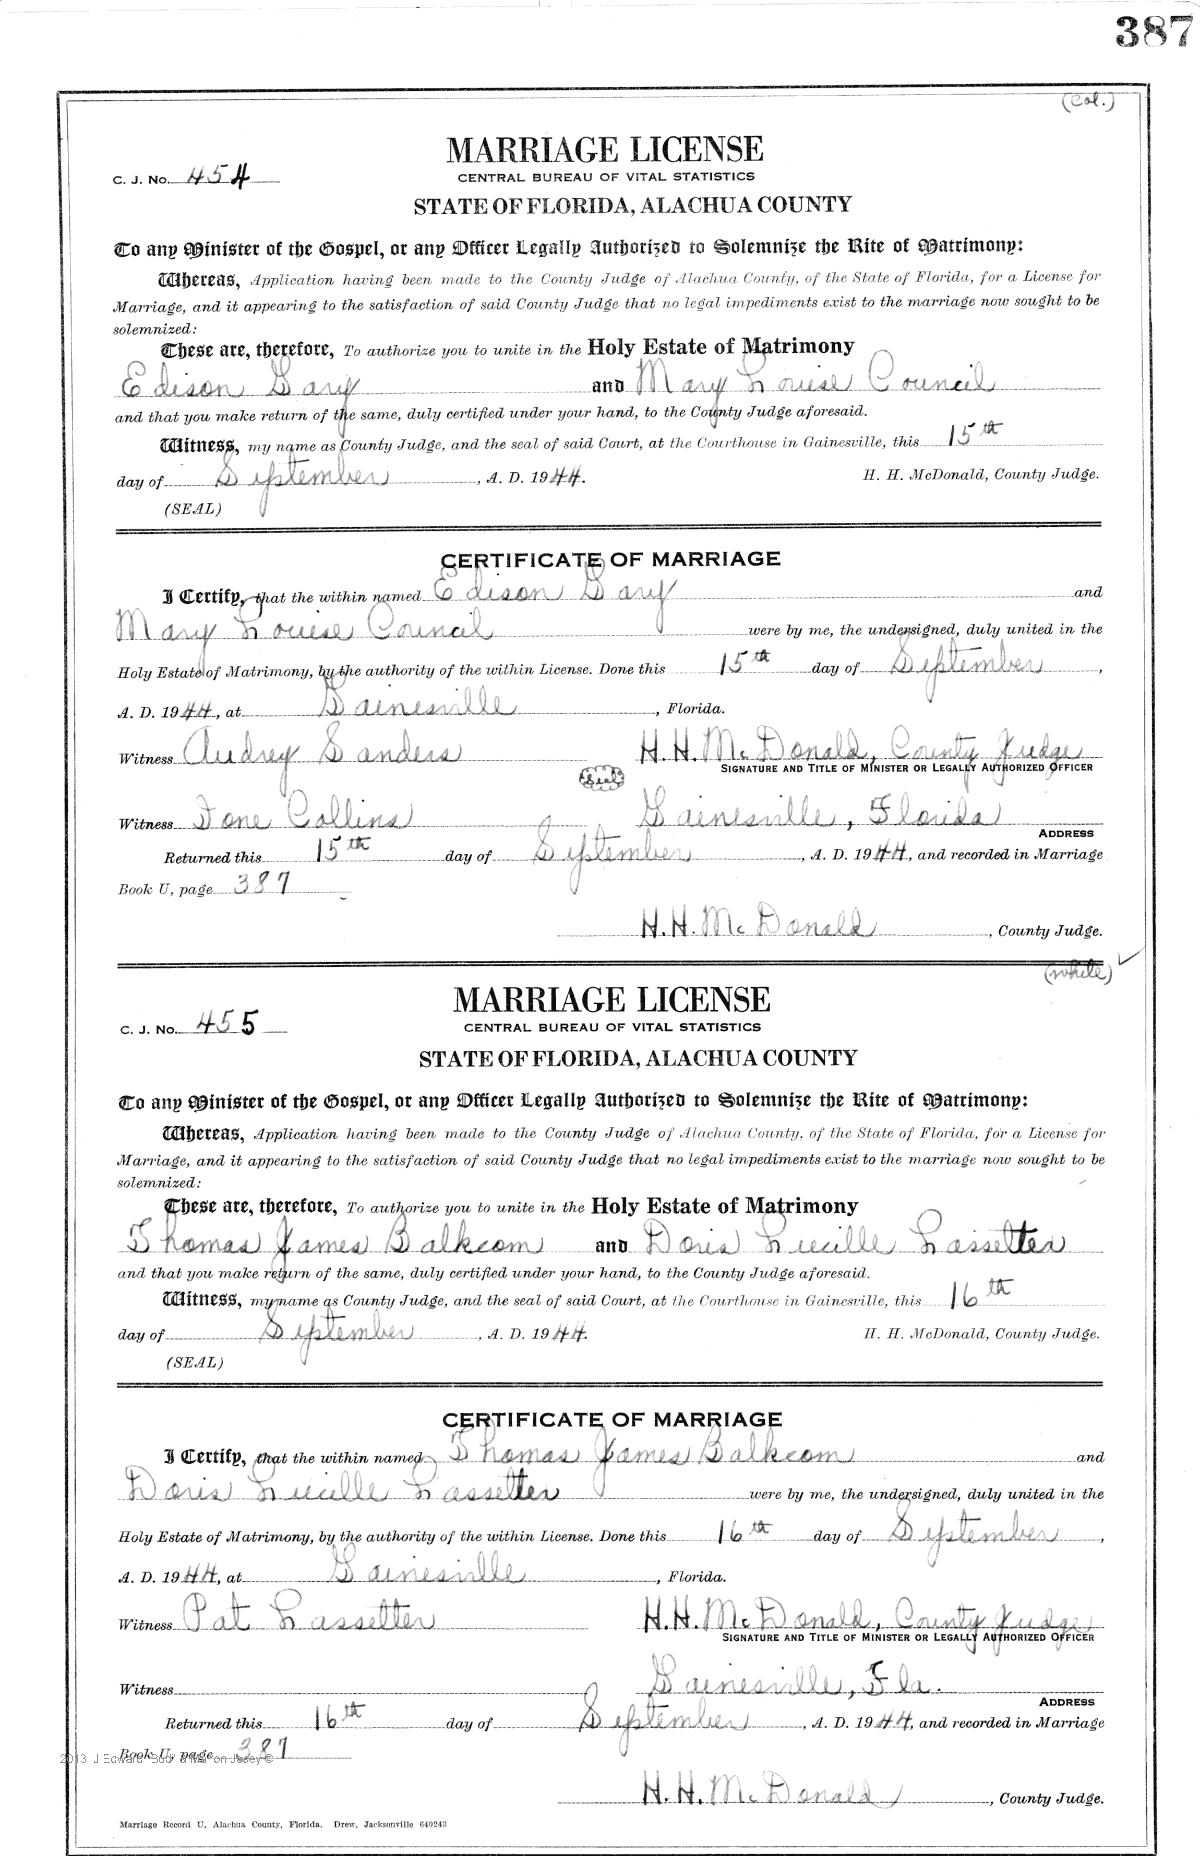 387
(Col.)
MARRIAGE LICENSE
C. J. No. 454
CENTRAL BUREAU OF VITAL STATISTICS
STATE OF FLORIDA, ALACHUA COUNTY
To any Minister of the Gospel, or any Officer Legally Authorized to Solemnize the Rite of Matrimony:
Whereas, Application having been made to the County Judge of Alachua County, of the State of Florida, for a License for
Marriage, and it appearing to the satisfaction of said County Judge that no legal impediments exist to the marriage now sought to be
solemnized:
These are, therefore, To authorize you to unite in the Holy Estate of Matrimony
Edison Gary and Mary Louise Council
and that you make return of the same, duly certified under your hand, to the County Judge aforesaid.
Witness, my name as County Judge, and the seal of said Court, at the Courthouse in Gainesville, this 15th
day of September, A. D. 1944. H. H. McDonald, County Judge.
(SEAL)
CERTIFICATE OF MARRIAGE
I Certify, that the within named Edison Gary and
Mary Louise Council were by me, the undersigned, duly united in the
Holy Estate of Matrimony, by the authority of the within License. Done this 15th day of September,
A. D. 1944, at Gainesville, Florida.
Witness Audrey Sanders H. H. McDonald, County Judge
SIGNATURE AND TITLE OF MINISTER OR LEGALLY AUTHORIZED OFFICER
(Seal)
Witness Ione Collins Gainesville, Florida
ADDRESS
Returned this 15th day of September, A. D. 1944, and recorded in Marriage
Book U, page 387
H. H. McDonald, County Judge.
(white)
MARRIAGE LICENSE
C. J. No. 455
CENTRAL BUREAU OF VITAL STATISTICS
STATE OF FLORIDA, ALACHUA COUNTY
To any Minister of the Gospel, or any Officer Legally Authorized to Solemnize the Rite of Matrimony:
Whereas, Application having been made to the County Judge of Alachua County, of the State of Florida, for a License for
Marriage, and it appearing to the satisfaction of said County Judge that no legal impediments exist to the marriage now sought to be
solemnized:
These are, therefore, To authorize you to unite in the Holy Estate of Matrimony
Thomas James Balkcom and Doris Lucille Lassetter
and that you make return of the same, duly certified under your hand, to the County Judge aforesaid.
Witness, my name as County Judge, and the seal of said Court, at the Courthouse in Gainesville, this 16th
day of September, A. D. 1944. H. H. McDonald, County Judge.
(SEAL)
CERTIFICATE OF MARRIAGE
I Certify, that the within named Thomas James Balkcom and
Doris Lucille Lassetter were by me, the undersigned, duly united in the
Holy Estate of Matrimony, by the authority of the within License. Done this 16th day of September,
A. D. 1944, at Gainesville, Florida.
Witness Pat Lassetter H. H. McDonald, County Judge
SIGNATURE AND TITLE OF MINISTER OR LEGALLY AUTHORIZED OFFICER
Witness Gainesville, Fla.
ADDRESS
Returned this 16th day of September, A. D. 1944, and recorded in Marriage
Book U, page 387
2013 J Edward
H. H. McDonald, County Judge.
Marriage Record U, Alachua County, Florida. Drew, Jacksonville 640243